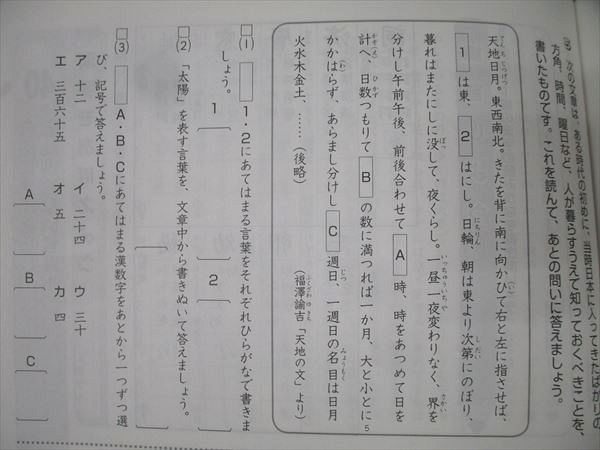 次の文章は、ある時代の初めに、当時日本に入ってきたばかりの
方角、時間、曜日など、人が暮らすうえで知っておくべきことを、
書いたものです。これを読んで、あとの問いに答えましょう。
天地日月。東西南北。きたを背に南に向かひて右と左に指させば、
1は東、2はにし。日輪、朝は東より次第にのぼり、
暮れはまたにしに没して、夜くらし。一昼一夜変わりなく、界を
分けし午前午後、前後合わせてA時、時をあつめて日を
計へ、日数つもりてBの数に満つれば一か月、大と小とに
かかはらず、あらまし分けしC週日、一週日の名目は日月
火水木金土、……(後略)
(福澤諭吉「天地の文」より)
5
□(1) 1・2にあてはまる言葉をそれぞれひらがなで書きま
しょう。
1 2
□(2) 「太陽」を表す言葉を、文章中から書きぬいて答えましょう。
□(3) A・B・Cにあてはまる漢数字をあとから一つずつ選
び、記号で答えましょう。
ア 十二 イ 二十四 ウ 三十
エ 三百六十五 オ 五 カ 四
A B C